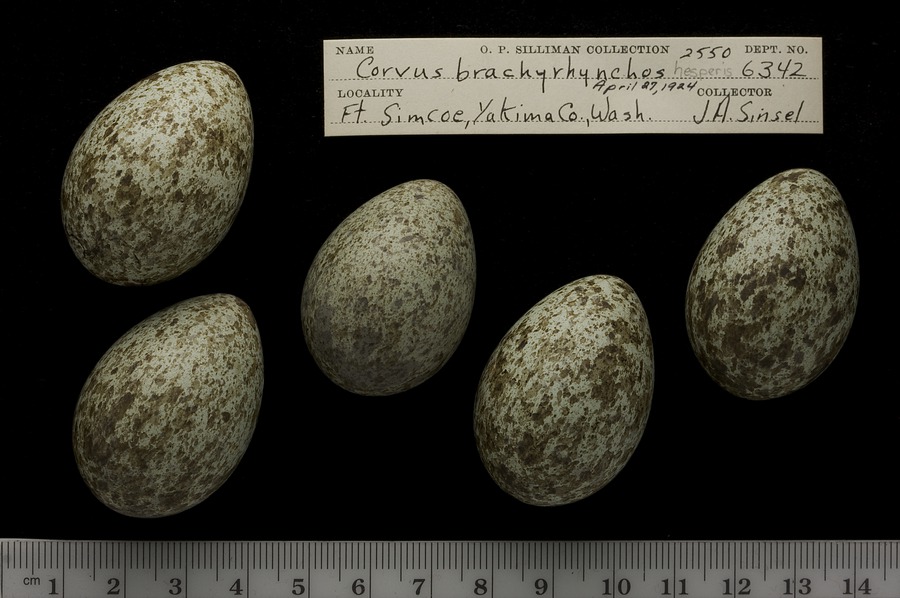 NAME O. P. SILLIMAN COLLECTION 2550 DEPT. NO.
Corvus brachyrhynchos hesperis 6342
April 27, 1924
LOCALITY COLLECTOR
Ft. Simcoe, Yakima Co., Wash. J.A. Sinsel
cm 1 2 3 4 5 6 7 8 9 10 11 12 13 14